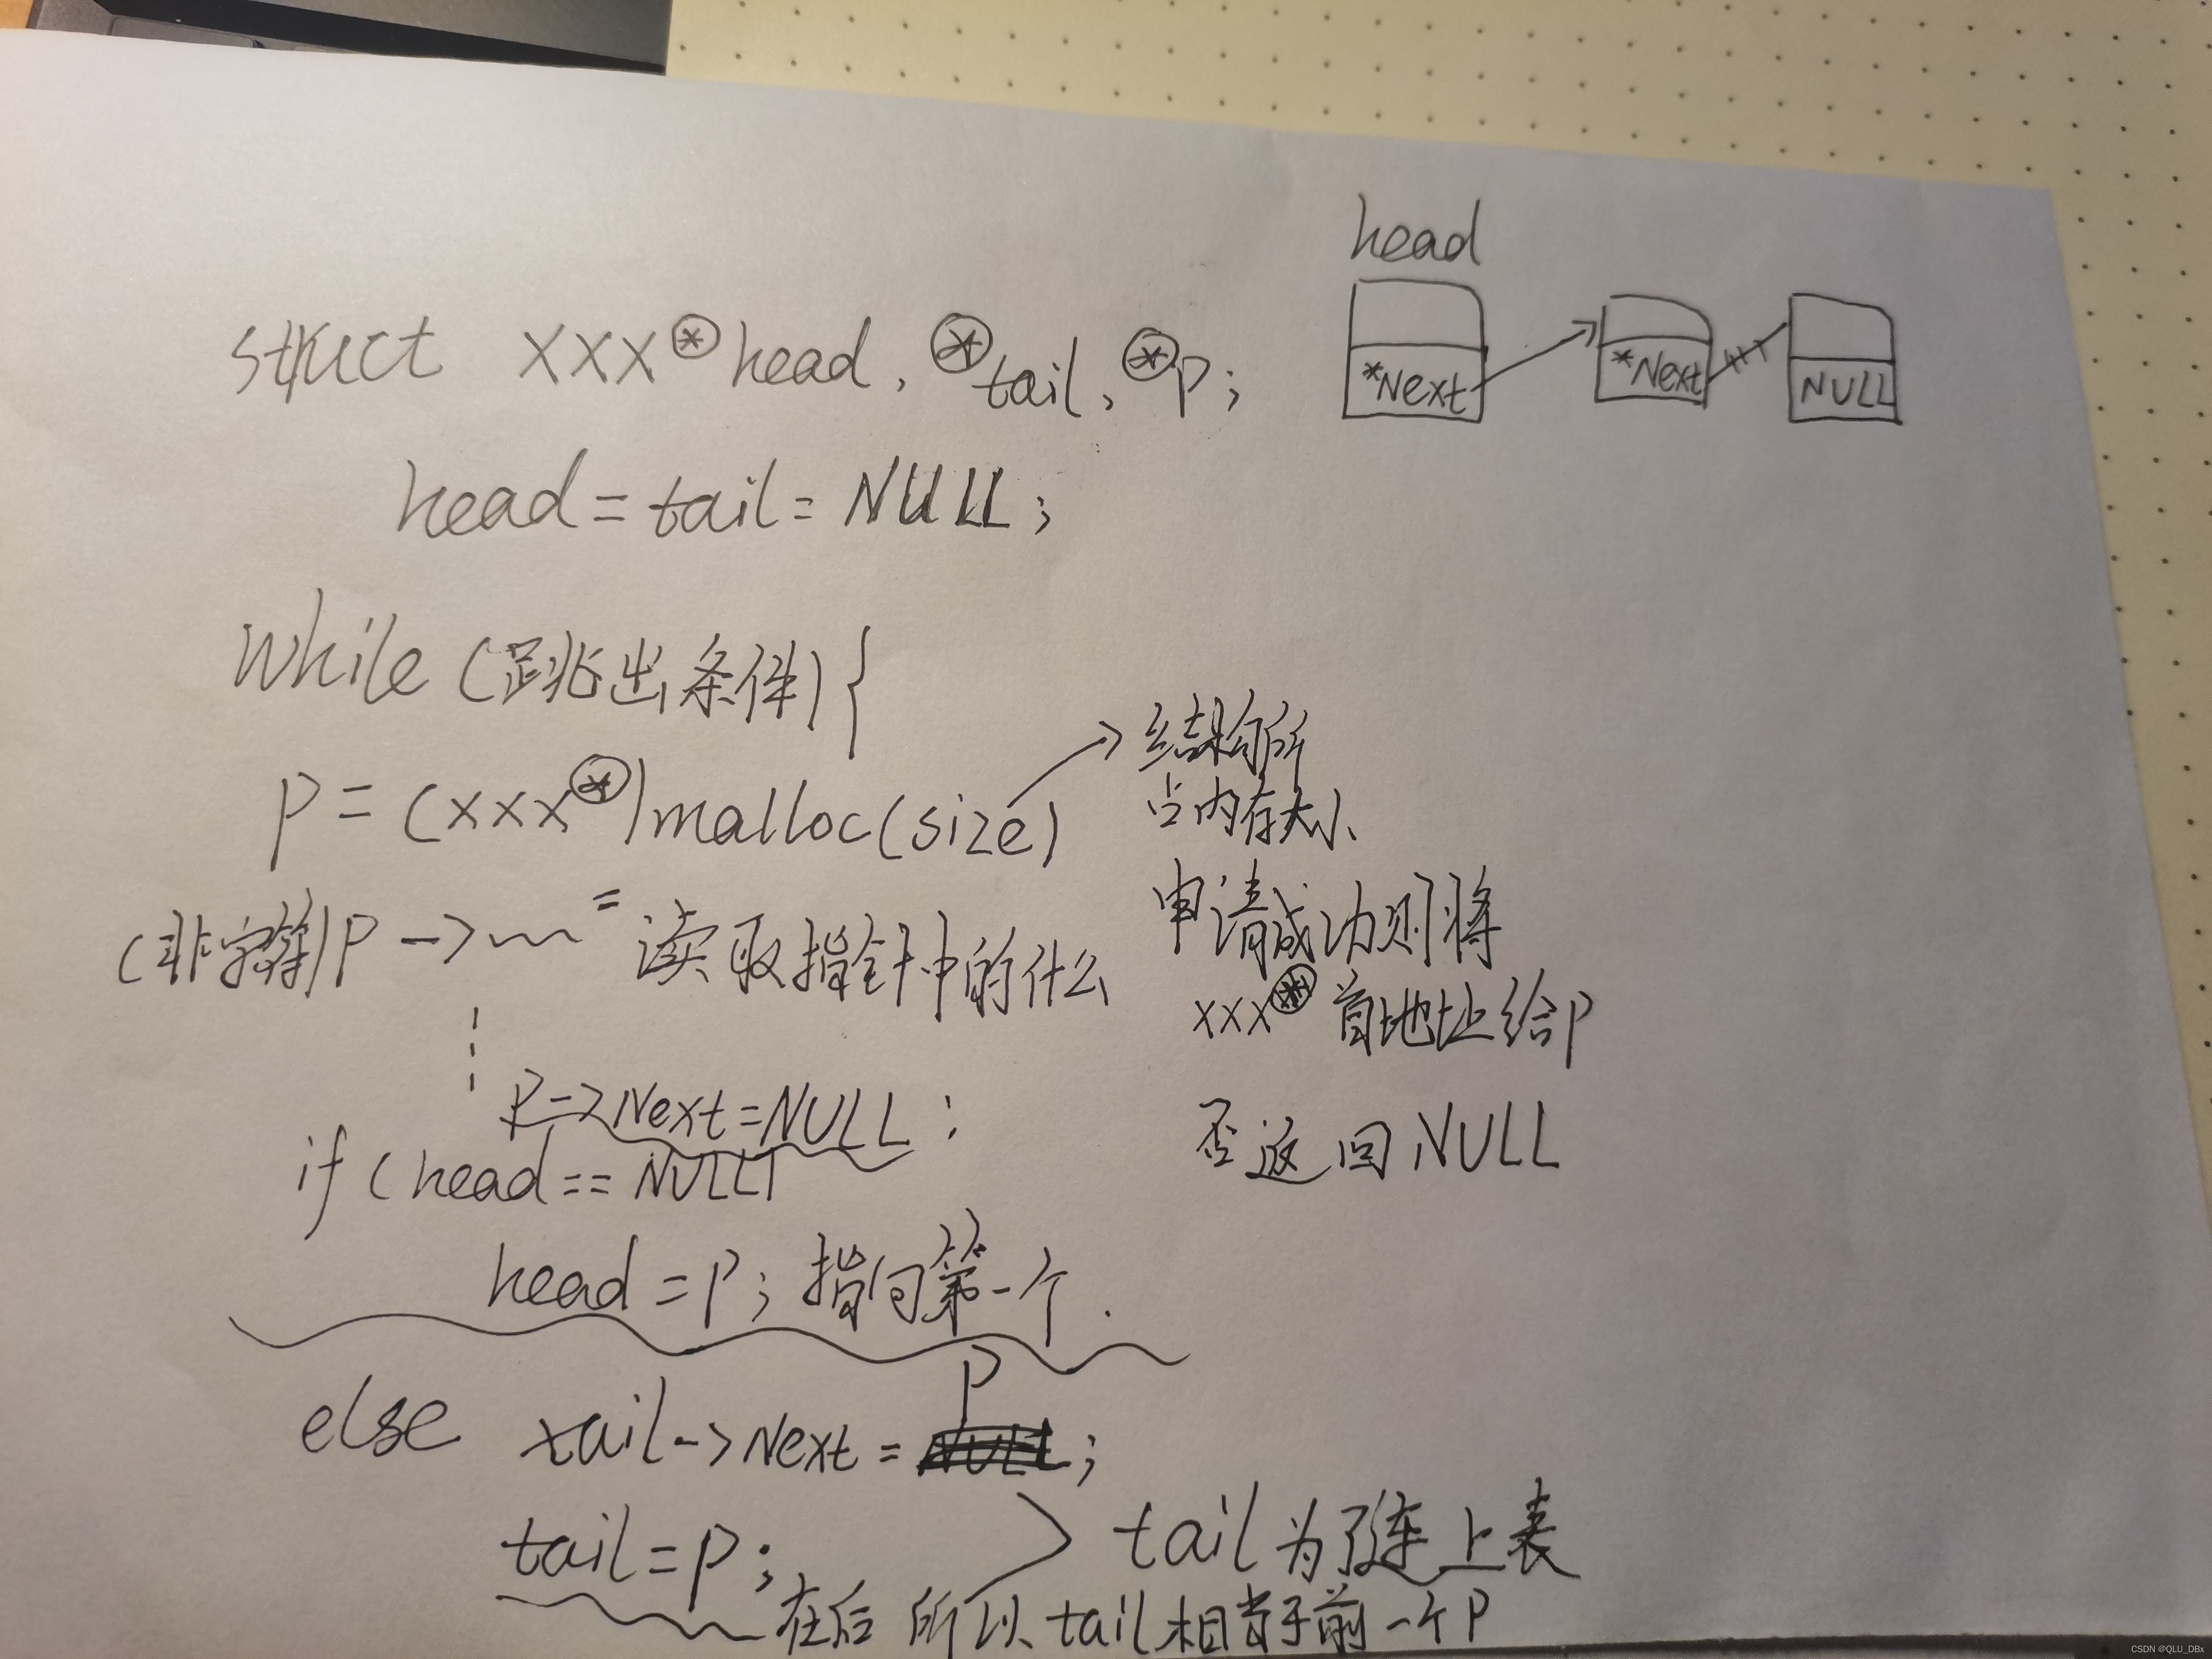 struct xxx*head, *tail, *p;
head = tail = NULL;
while (跳出条件) {
p = (xxx*)malloc(size)
(非字符)p -> = 读取指针中的什么
p->Next=NULL;
if (head == NULL)
head = p; 指向第一个.
else tail->Next = p;
tail = p;
在后 所以 tail 相当于前一个p
tail 为了连上表
结构所
占内存大小
申请成功则将
xxx* 首地址给p
否返回 NULL
head
*Next
*Next
NULL
CSDN @QLU_DBx